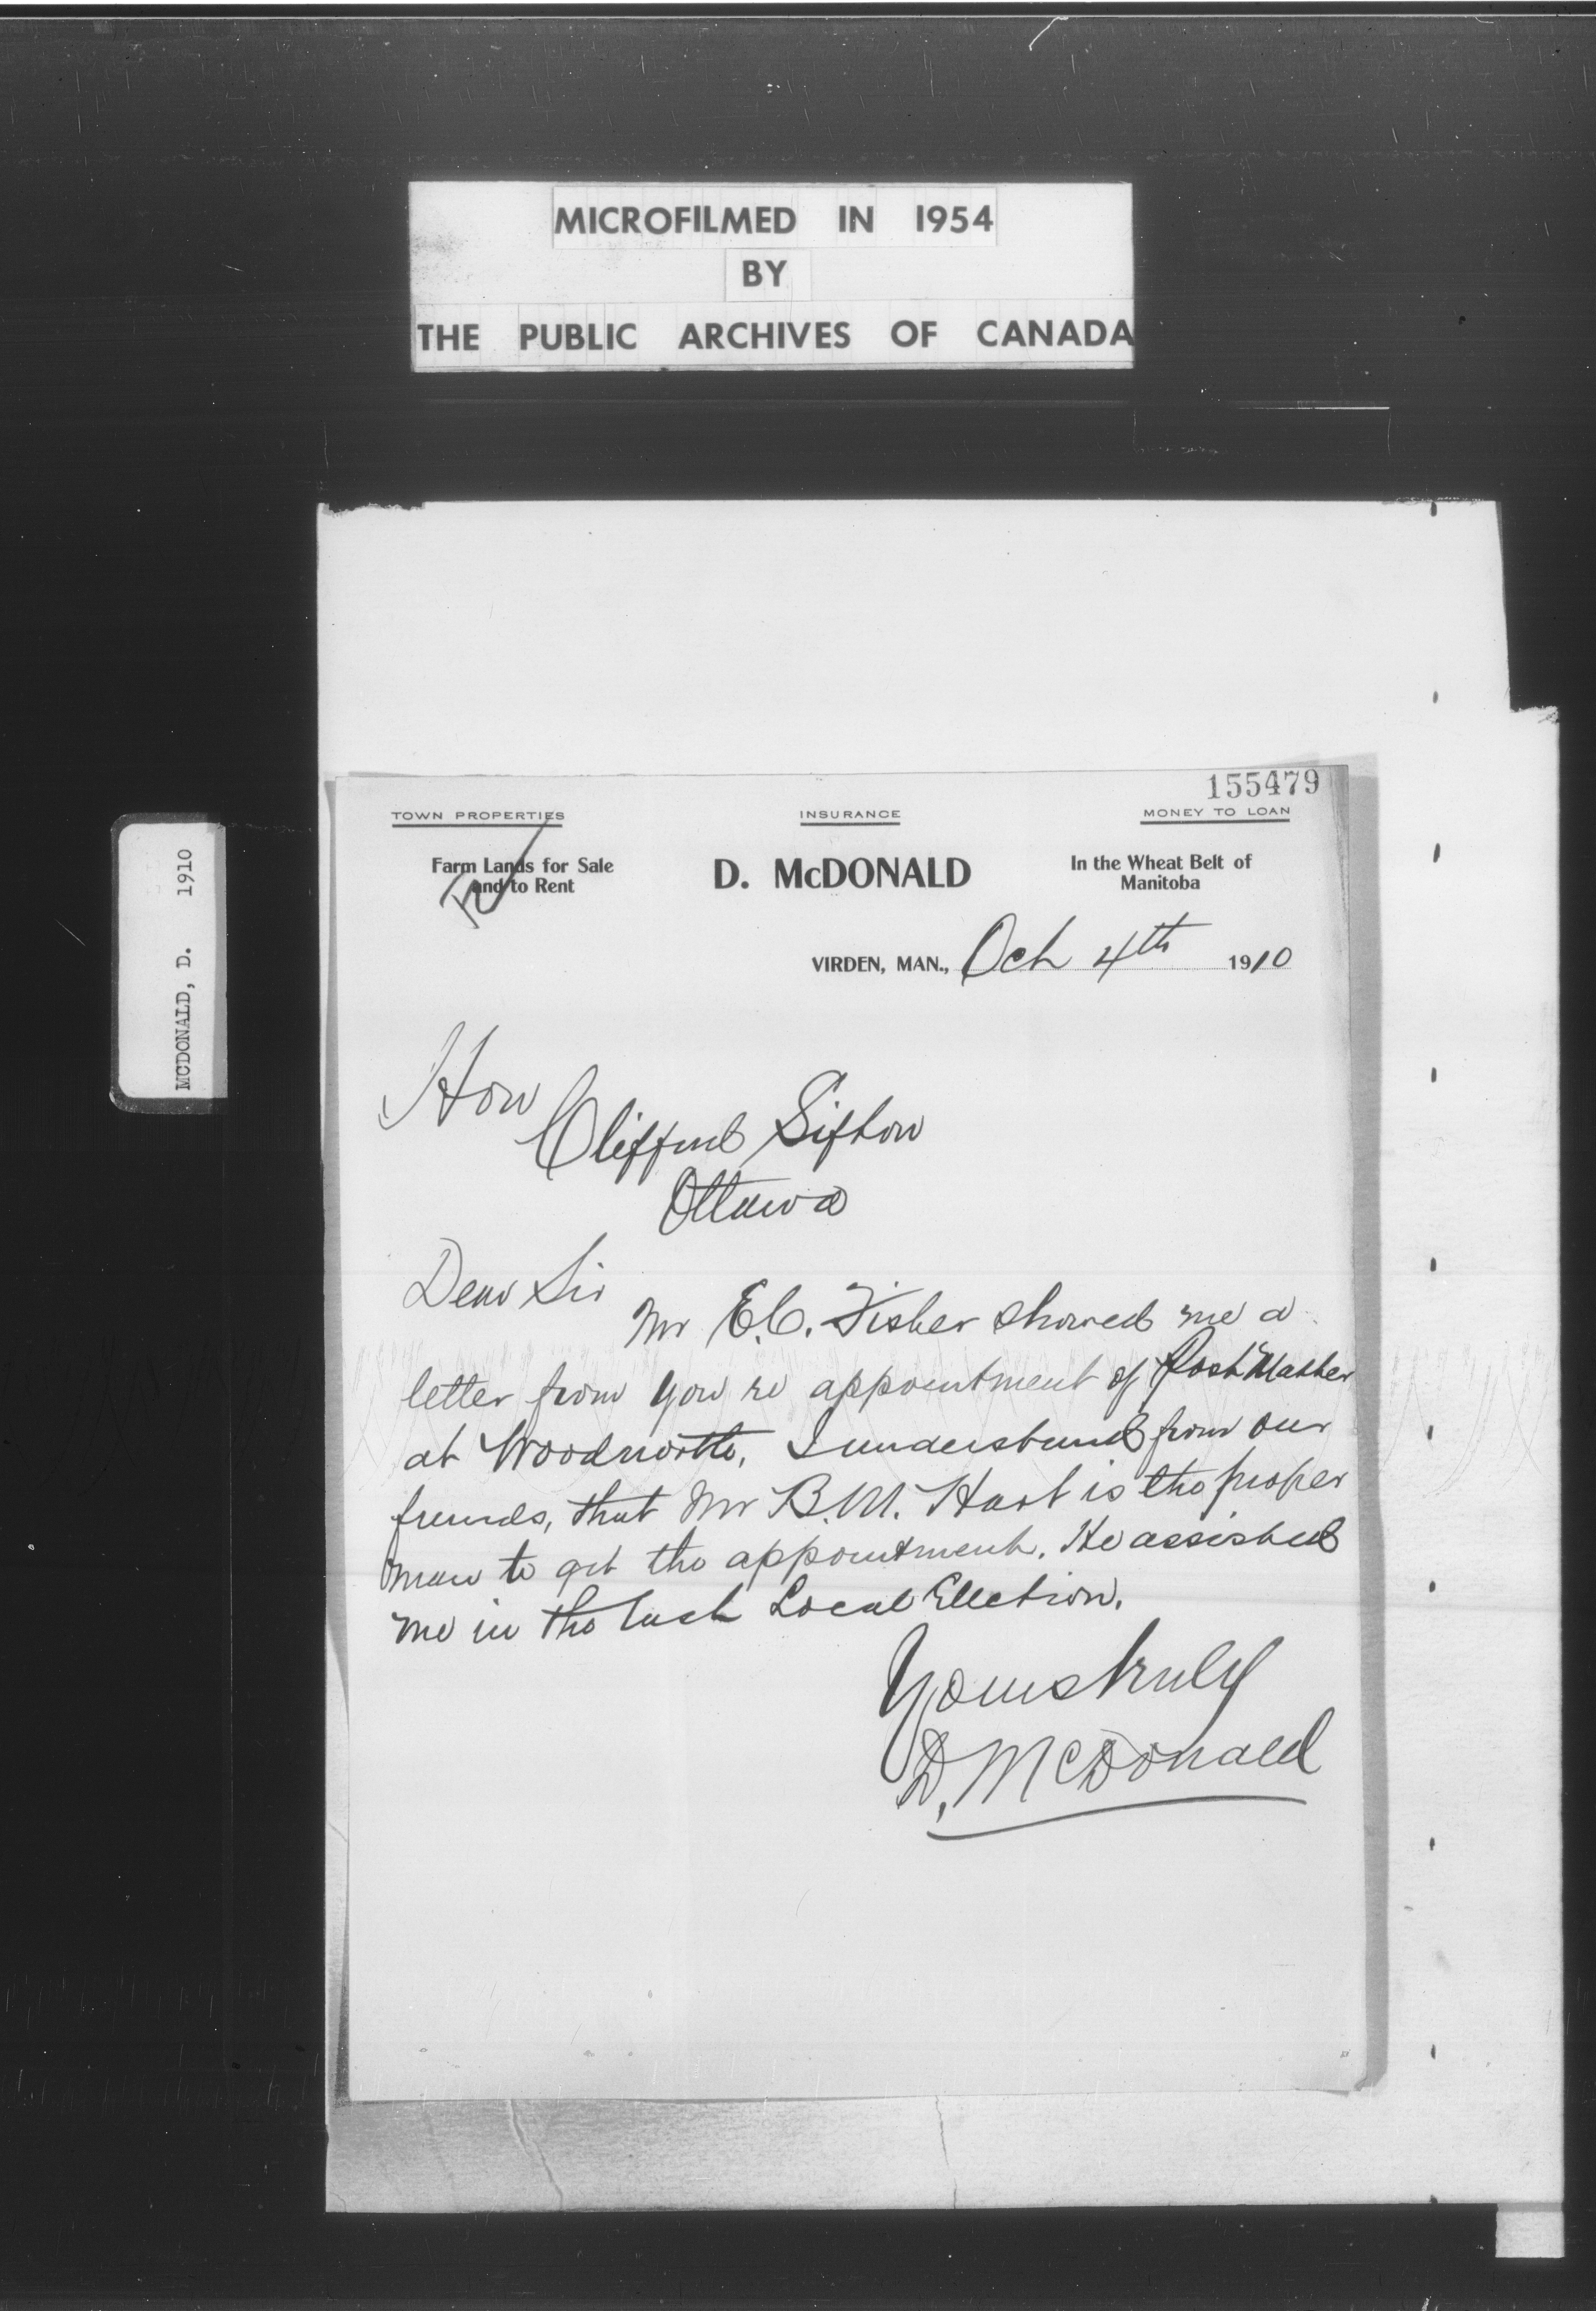 MICROFILMED IN 1954
BY
THE PUBLIC ARCHIVES OF CANADA
MCDONALD, D. 1910
155479
TOWN PROPERTIES
INSURANCE
MONEY TO LOAN
Farm Lands for Sale
and to Rent
D. McDONALD
In the Wheat Belt of
Manitoba
VIRDEN, MAN., Oct 4th 1910
Hon
Clifford Sifton
Ottawa
Dear Sir
Mr E.C. Fisher showed me a
letter from you re appointment of Post Master
at Woodnorth, I understand from our
friends, that Mr B.M. Hart is the proper
man to get the appointment. He assisted
me in the last Local Ellection.
Yours truly
D. McDonald